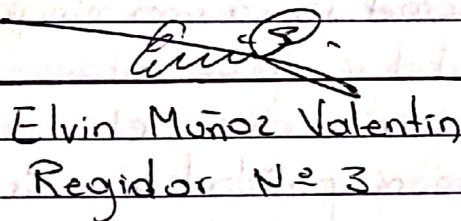 Elvin Muñoz Valentin
Regidor Nº 3